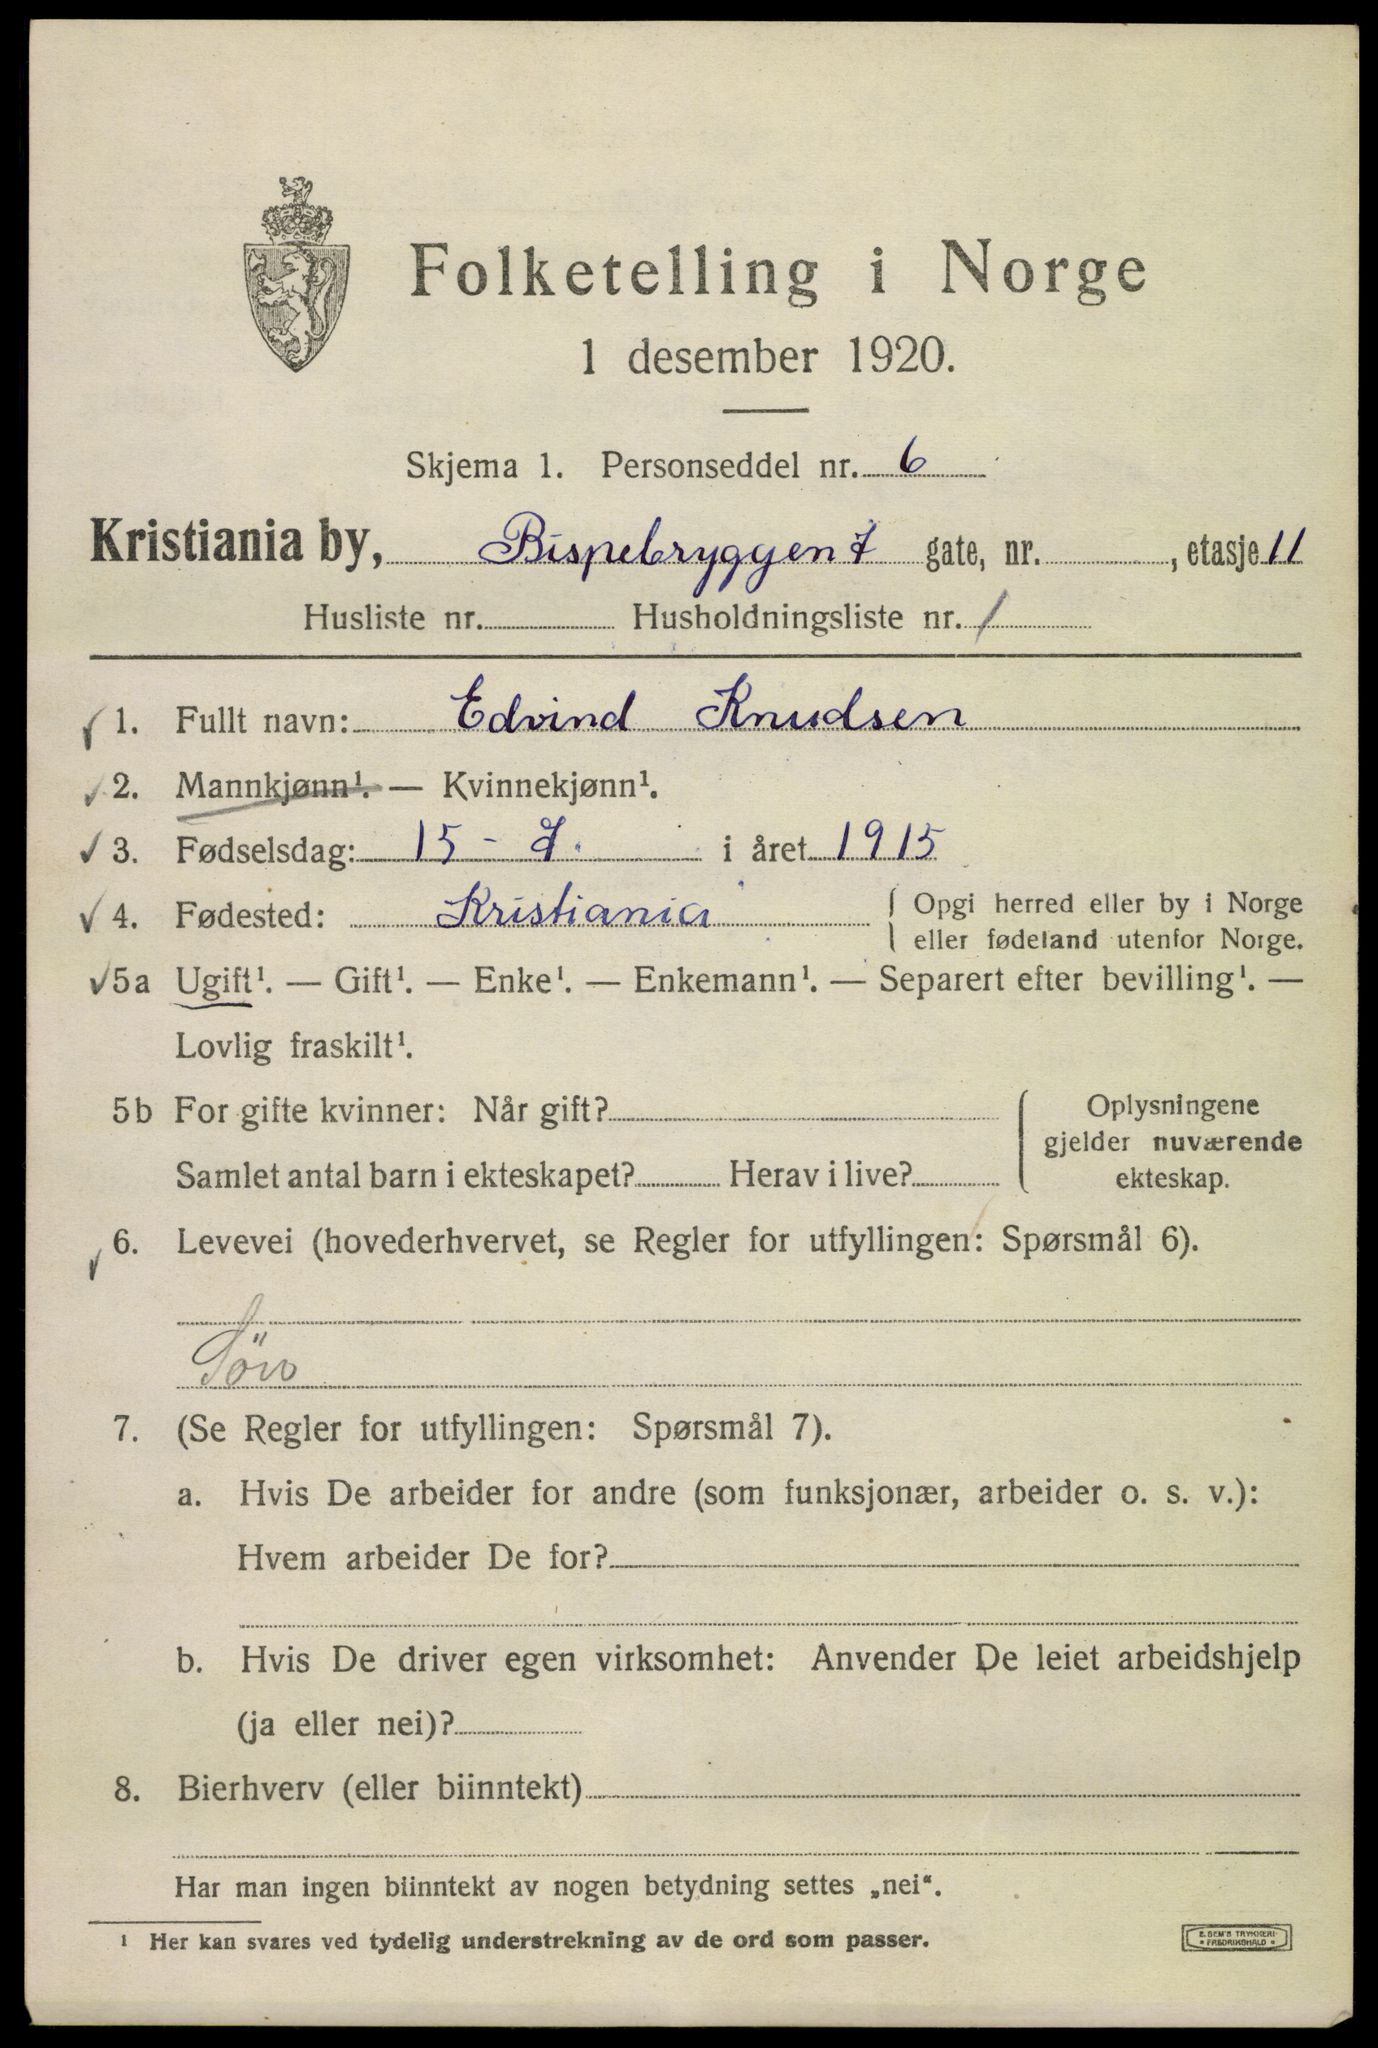 Folketelling i Norge
1 desember 1920.
Skjema 1. Personseddel nr. 6
Kristiania by, Bispebryggen 7 gate, nr. , etasje 11
Husliste nr. Husholdningsliste nr. 1
1. Fullt navn: Edvind Knudsen
2. Mannkjønn¹. — Kvinnekjønn¹.
3. Fødselsdag: 15 - 7. i året 1915
4. Fødested: Kristiania { Opgi herred eller by i Norge
eller fødeland utenfor Norge.
5a Ugift¹. — Gift¹. — Enke¹. — Enkemann¹. — Separert efter bevilling¹. —
Lovlig fraskilt¹.
5b For gifte kvinner: Når gift? { Oplysningene
gjelder nuværende
Samlet antal barn i ekteskapet? Herav i live? ekteskap.
6. Levevei (hovederhvervet, se Regler for utfyllingen: Spørsmål 6).
Sön
7. (Se Regler for utfyllingen: Spørsmål 7).
a. Hvis De arbeider for andre (som funksjonær, arbeider o. s. v.):
Hvem arbeider De for?
b. Hvis De driver egen virksomhet: Anvender De leiet arbeidshjelp
(ja eller nei)?
8. Bierhverv (eller biinntekt)
Har man ingen biinntekt av nogen betydning settes „nei“.
¹ Her kan svares ved tydelig understrekning av de ord som passer.
E. SEM'S TRYKKERI
• FREDRIKSHALD •